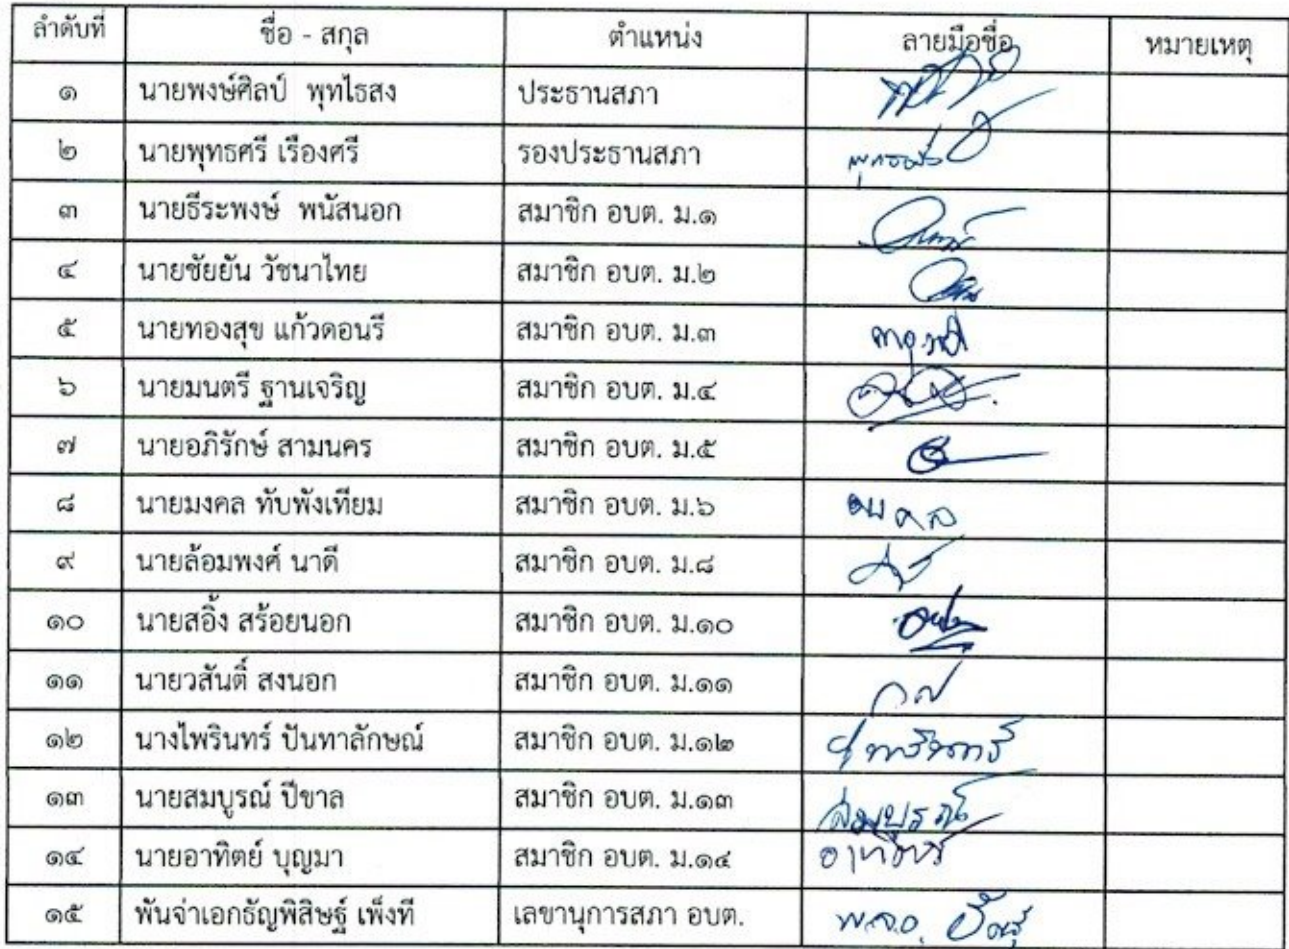 ลำดับที่ ชื่อ - สกุล ตำแหน่ง ลายมือชื่อ หมายเหตุ
๑ นายพงษ์ศิลป์ พุทไธสง ประธานสภา
๒ นายพุทธศรี เรืองศรี รองประธานสภา
๓ นายธีระพงษ์ พนัสนอก สมาชิก อบต. ม.๑
๔ นายชัยยัน วัชนาไทย สมาชิก อบต. ม.๒
๕ นายทองสุข แก้วดอนรี สมาชิก อบต. ม.๓
๖ นายมนตรี ฐานเจริญ สมาชิก อบต. ม.๔
๗ นายอภิรักษ์ สามนคร สมาชิก อบต. ม.๕
๘ นายมงคล ทับพังเทียม สมาชิก อบต. ม.๖ มงคล
๙ นายล้อมพงศ์ นาดี สมาชิก อบต. ม.๘
๑๐ นายสอิ้ง สร้อยนอก สมาชิก อบต. ม.๑๐
๑๑ นายวสันติ์ สงนอก สมาชิก อบต. ม.๑๑
๑๒ นางไพรินทร์ ปันทาลักษณ์ สมาชิก อบต. ม.๑๒
๑๓ นายสมบูรณ์ ปีขาล สมาชิก อบต. ม.๑๓ สมบูรณ์
๑๔ นายอาทิตย์ บุญมา สมาชิก อบต. ม.๑๔
๑๕ พันจ่าเอกธัญพิสิษฐ์ เพ็งที เลขานุการสภา อบต. พ.จ.อ.